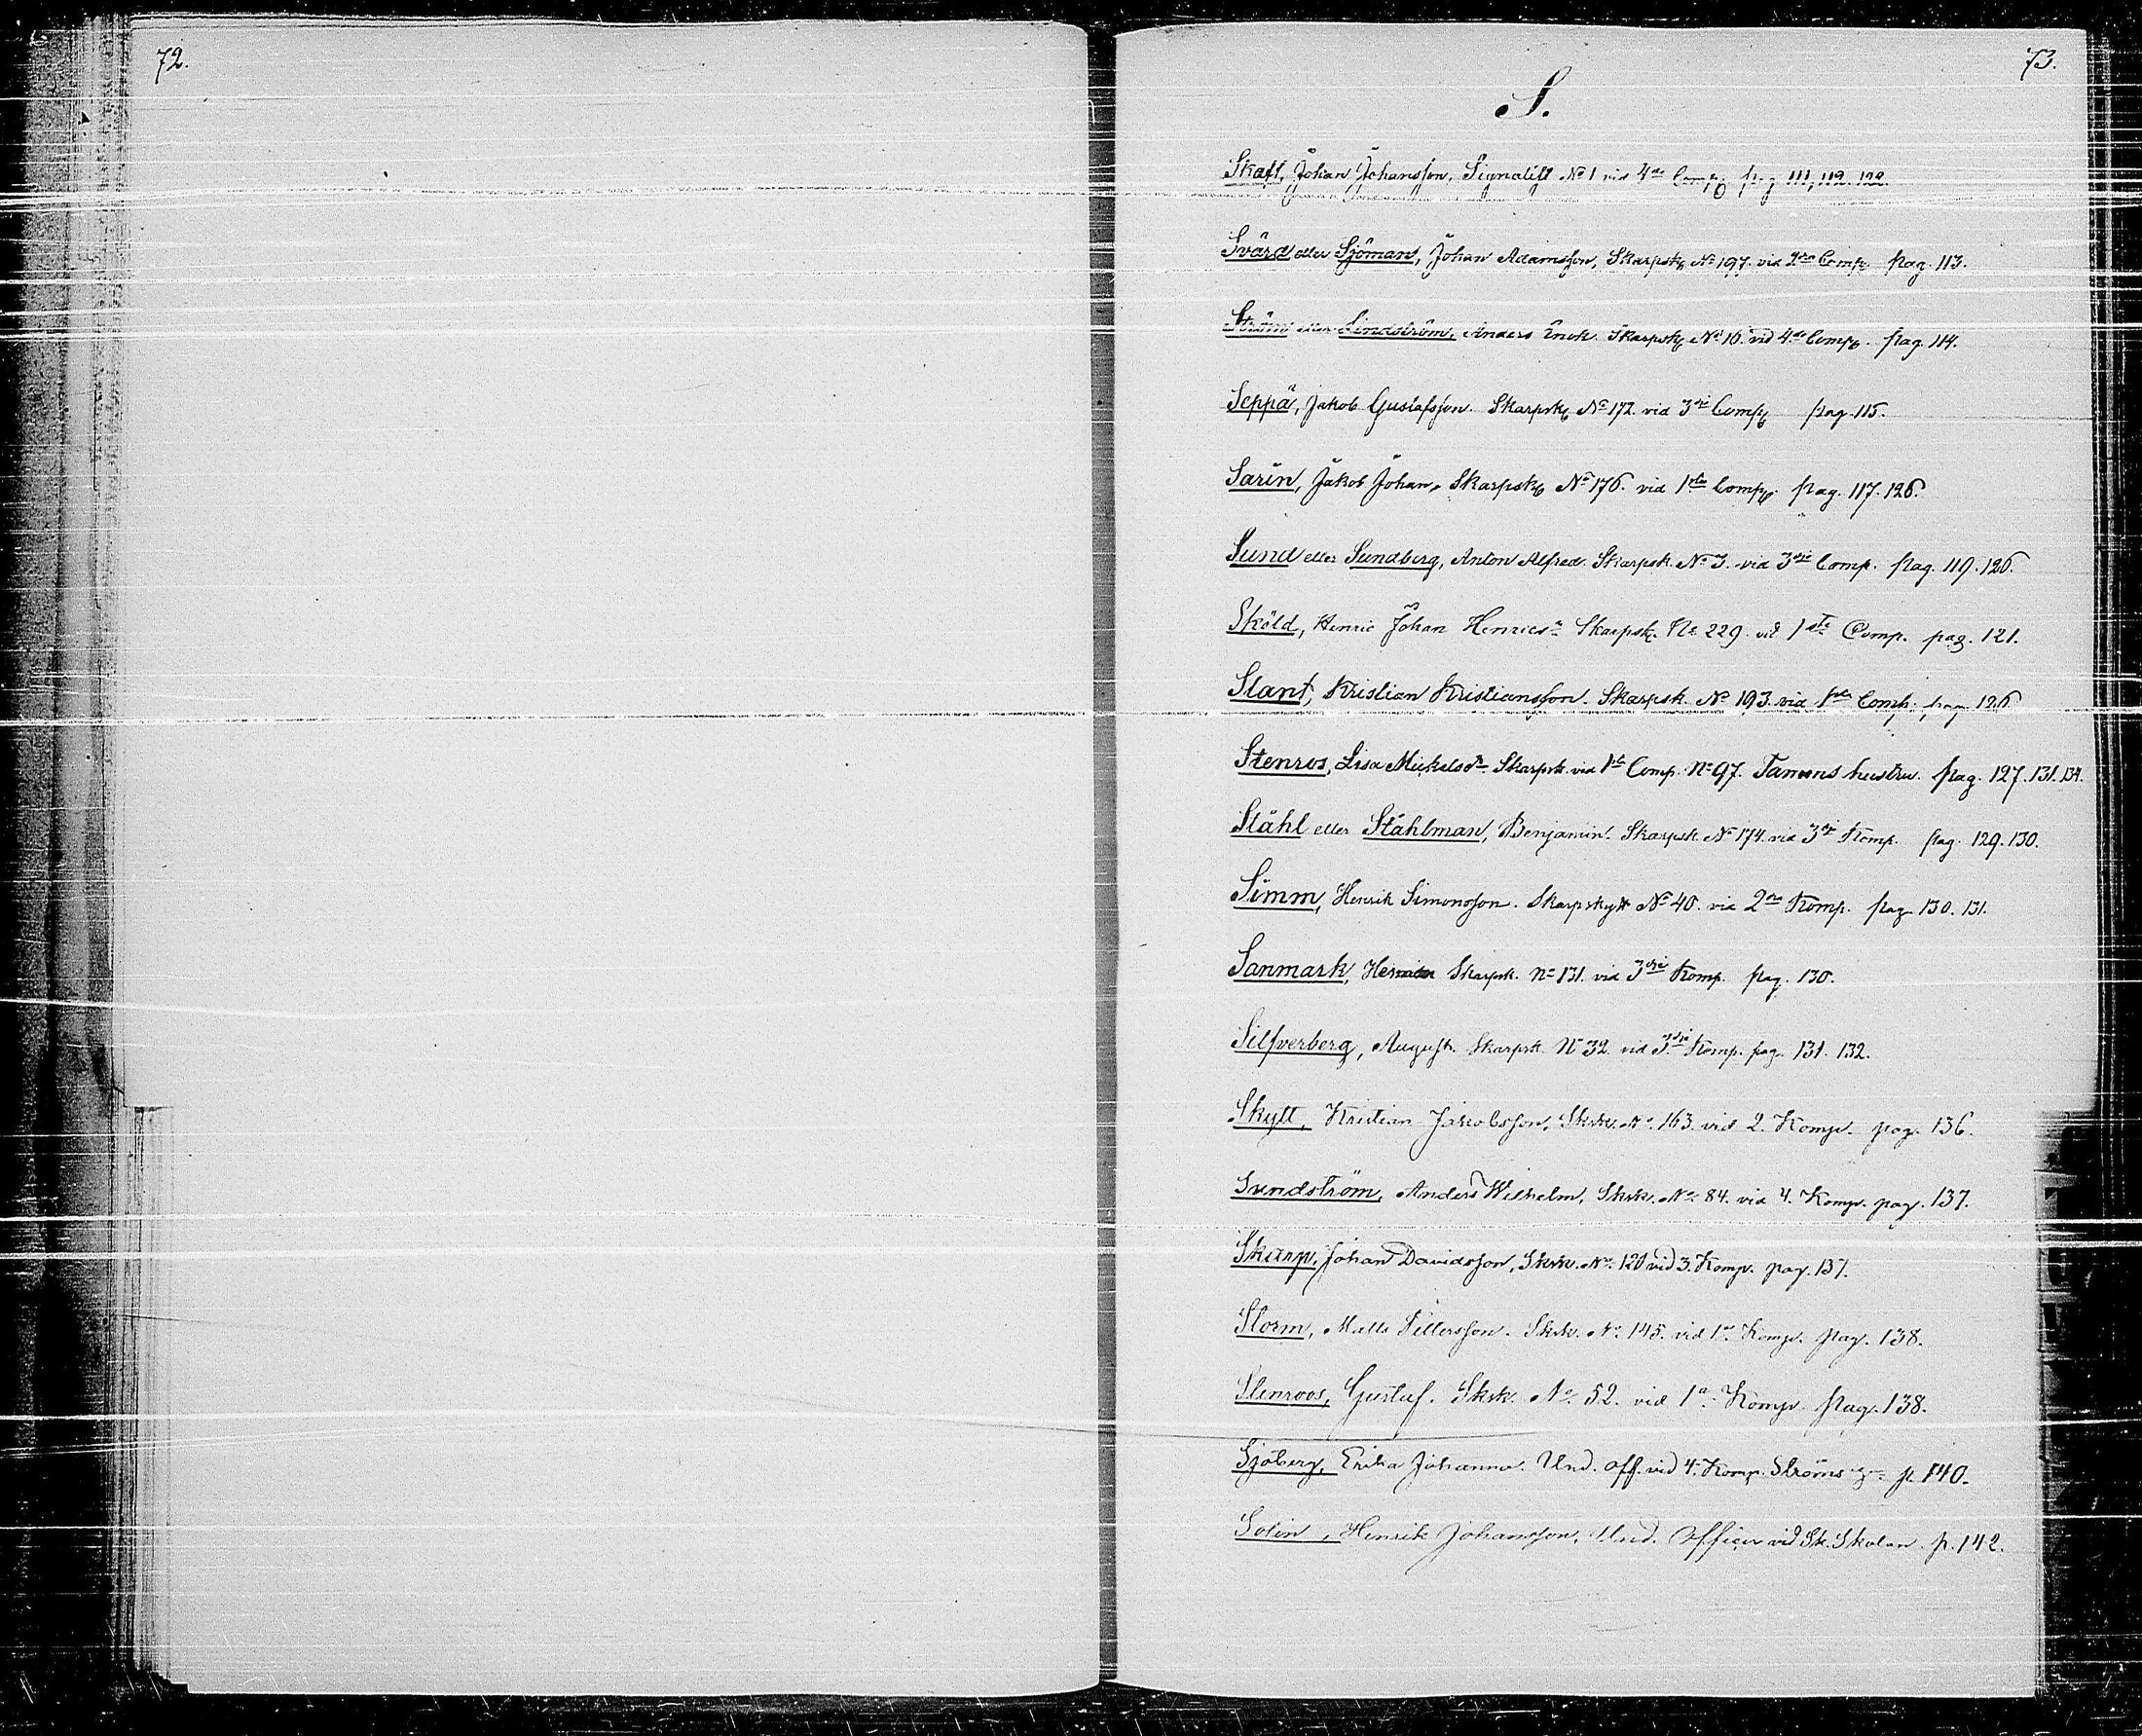 72.
73.
S.
Skatt, Johan Johansson, Signalist No 1 vid 4de Comp. pag 111, 112. 122.
Svärd eller Sjöman, Johan Adamsson, Skarpsk. No 197. vid 2dra Comp. pag. 113.
Ström eller Lindström, Anders Enok. Skarpsk. No 16. vid 4de Comp. pag. 114.
Seppä, Jakob Gustafsson. Skarpsk. No 172. vid 3die Comp. pag. 115.
Sarin, Jakob Johan, Skarpsk. No 176. vid 1sta Comp. pag. 117. 126.
Sund eller Sundberg, Anton Alfred. Skarpsk. No 3. vid 3die Comp. pag. 119. 126.
Sköld, Henric Johan Henricsn Skarpsk. No 229. vid 1ste Comp. pag. 121.
Slant, Kristian Kristiansson. Skarpsk. No 193. vid 1sta Comp. pag 126
Stenros, Lisa Mickelsdr. Skarpsk. vid 1sta Comp. No 97. Tammis hustru. pag. 127. 131. 134.
Ståhl eller Ståhlman, Benjamin. Skarpsk. No 174. vid 3die Komp. pag. 129. 130.
Simm, Henrik Simonsson. Skarpskytt No 40. vid 2dra Komp. pag. 130. 131.
Sanmark, Skarpsk. No 131. vid 3die Komp. pag. 130.
Silfverberg, August. Skarpsk. No 32. vid 3die Komp. pag. 131. 132.
Skytt, Kristian Jakobsson, Skrk. No. 163. vid 2. Komp. pag. 136.
Sundström, Anders Wilhelm, Skrk. No. 84. vid 4. Komp. pag. 137.
Skarp, Johan Davidsson, Skrk. No. 120 vid 3. Komp. pag. 137.
Storm, Matts Pettersson. Skrk. No. 145. vid 1a Komp. pag. 138.
Stenroos, Gustaf. Skrk. No. 52. vid 1a Komp. pag. 138.
Sjöberg, Erika Johanna. Und. off. vid 4. Komp. Ströms p. 140.
Solin, Henrik Johansson, Und. Officer vid Sk. Skolan. p. 142.